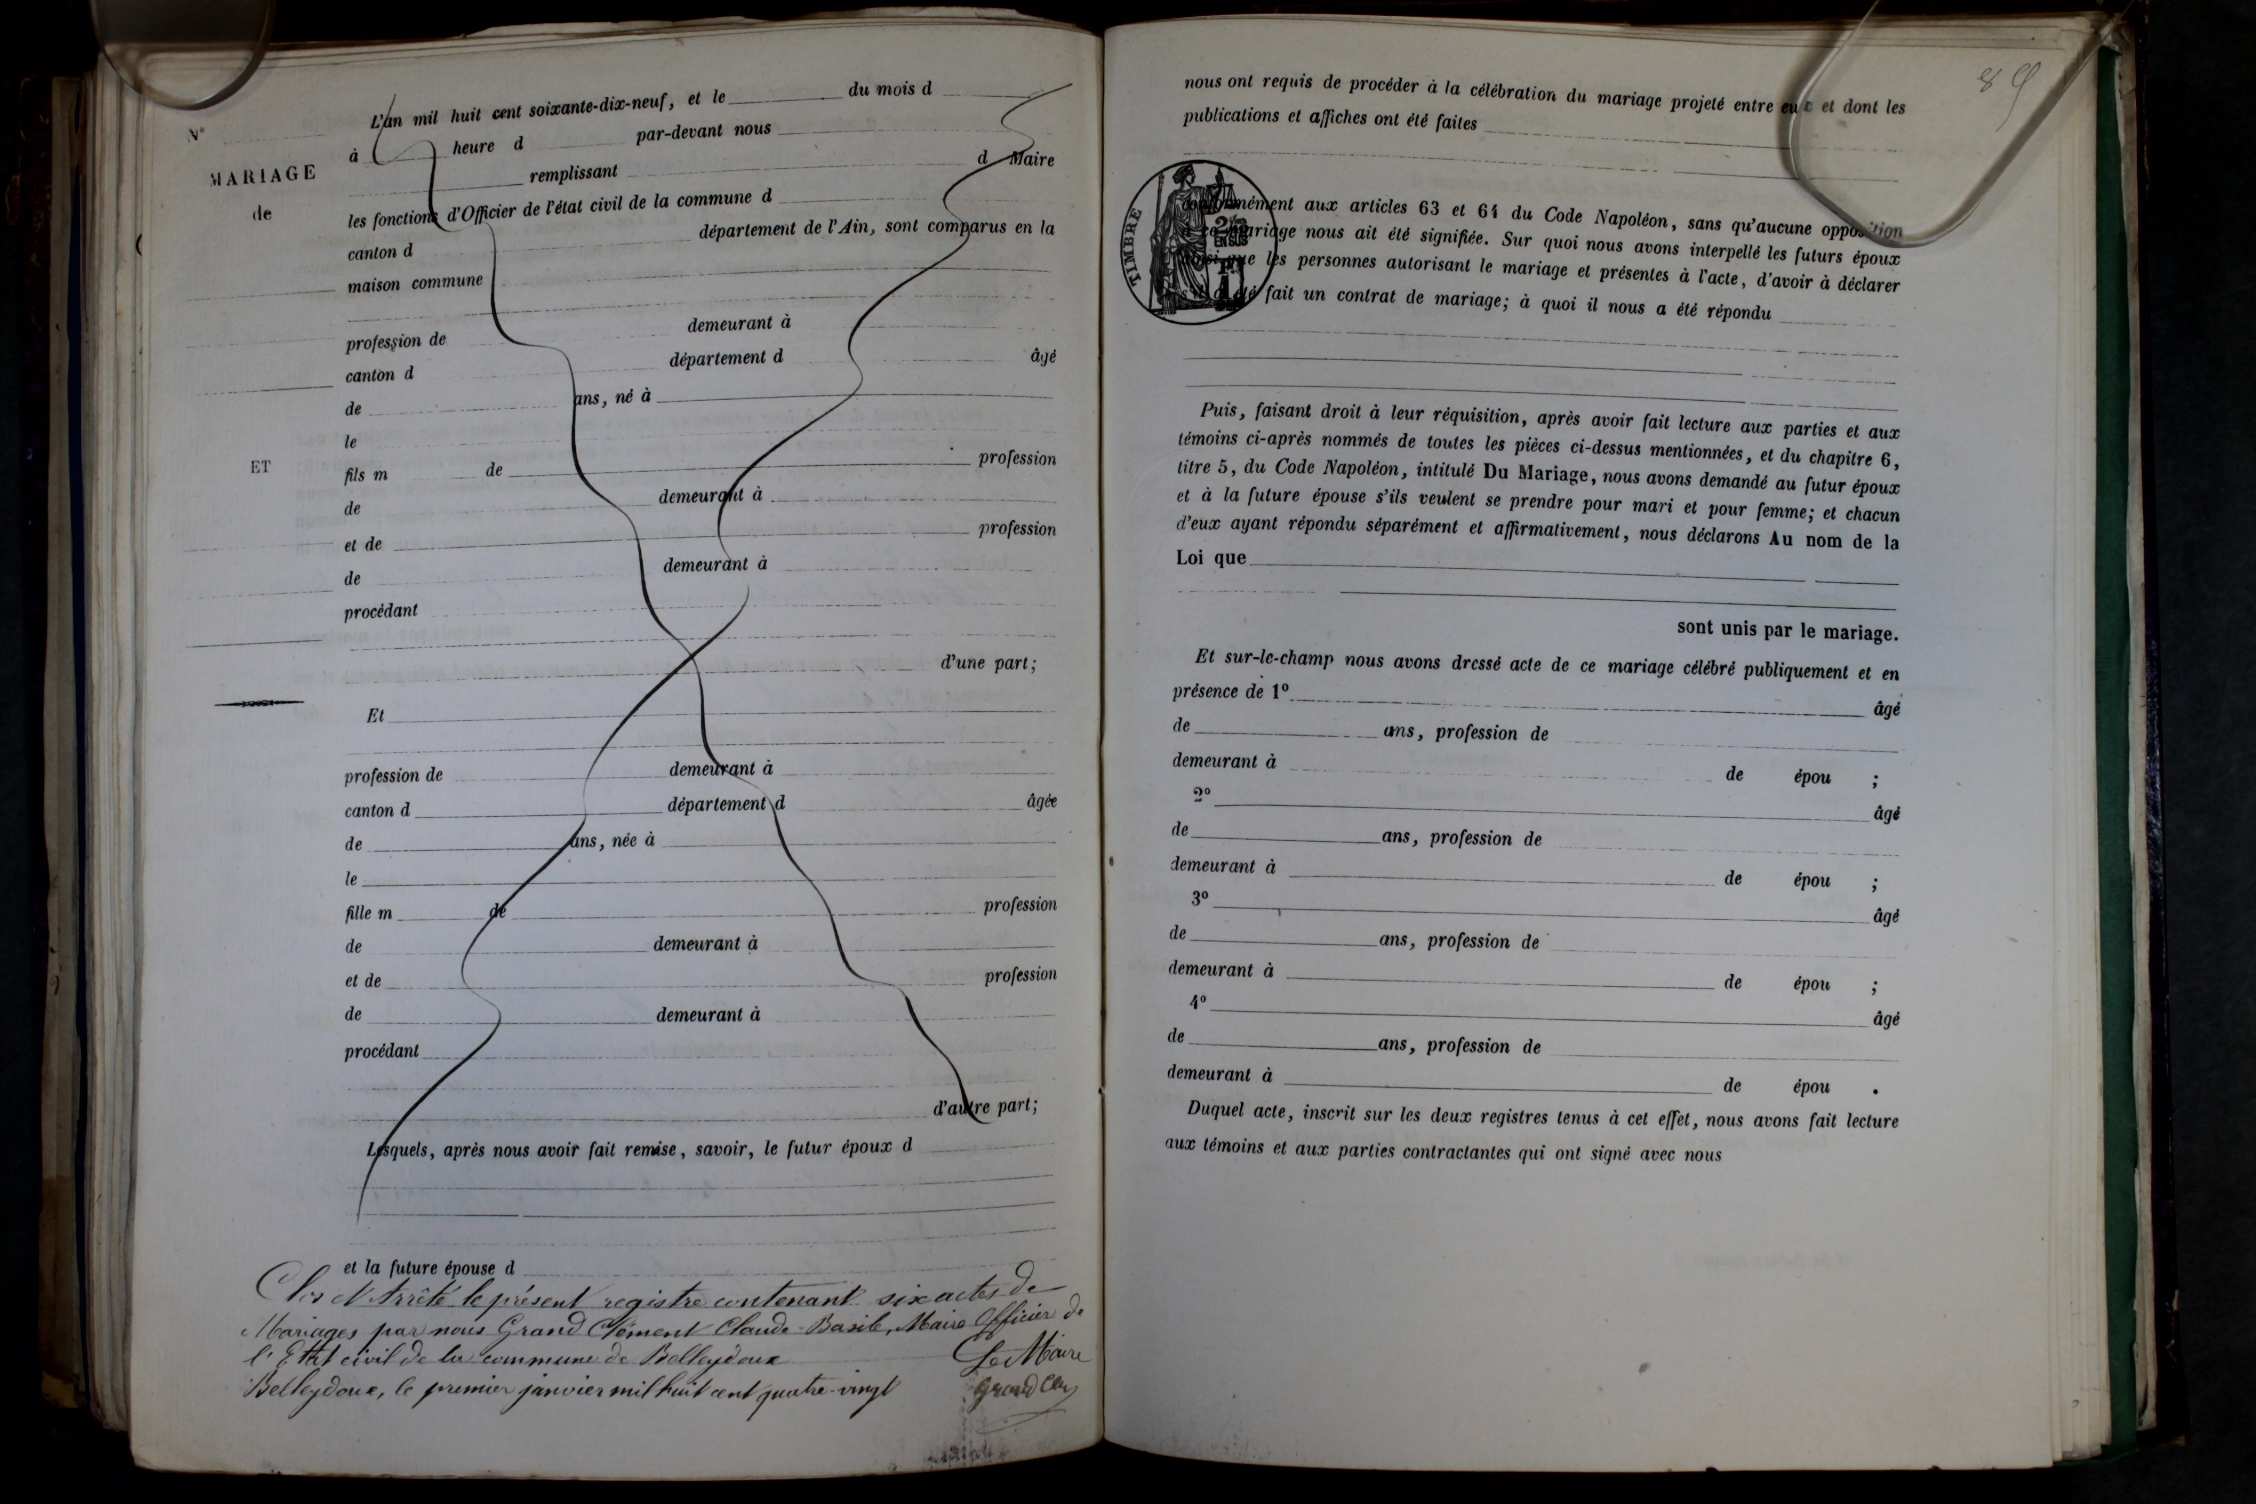 L'an mil huit cent soixante-dix-neuf, et le du mois d
N°
à heure d par-devant nous
MARIAGE
d Maire
remplissant
de
les fonctions d'Officier de l'état civil de la commune d
canton d département de l'Ain, sont comparus en la
maison commune
profession de demeurant à
canton d département d âgé
de ans, né à
le
ET
fils m de profession
de demeurant à
et de profession
de demeurant à
procédant
d'une part;
Et
profession de demeurant à
canton d département d âgée
de ans, née à
le
fille m de profession
de demeurant à
et de profession
de demeurant à
procédant
d'autre part;
Lesquels, après nous avoir fait remise, savoir, le futur époux d
et la future épouse d
Clos et Arrêté le présent registre contenant six actes de
Mariages par nous Grand Clément Claude-Basile, Maire Officier de
l'Etat civil de la commune de Belleydoux
Le Maire
Belleydoux, le premier janvier mil huit cent quatre-vingt
Grand Cl
89
nous ont requis de procéder à la célébration du mariage projeté entre eux et dont les
publications et affiches ont été faites
TIMBRE
conformément aux articles 63 et 64 du Code Napoléon, sans qu'aucune opposition
à ce mariage nous ait été signifiée. Sur quoi nous avons interpellé les futurs époux
ainsi que les personnes autorisant le mariage et présentes à l'acte, d'avoir à déclarer
s'il a été fait un contrat de mariage; à quoi il nous a été répondu
Puis, faisant droit à leur réquisition, après avoir fait lecture aux parties et aux
témoins ci-après nommés de toutes les pièces ci-dessus mentionnées, et du chapitre 6,
titre 5, du Code Napoléon, intitulé Du Mariage, nous avons demandé au futur époux
et à la future épouse s'ils veulent se prendre pour mari et pour femme; et chacun
d'eux ayant répondu séparément et affirmativement, nous déclarons Au nom de la
Loi que
sont unis par le mariage.
Et sur-le-champ nous avons dressé acte de ce mariage célébré publiquement et en
présence de 1° âgé
de ans, profession de
demeurant à de épou ;
2° âgé
de ans, profession de
demeurant à de épou ;
3° âgé
de ans, profession de
demeurant à de épou ;
4° âgé
de ans, profession de
demeurant à de épou .
Duquel acte, inscrit sur les deux registres tenus à cet effet, nous avons fait lecture
aux témoins et aux parties contractantes qui ont signé avec nous